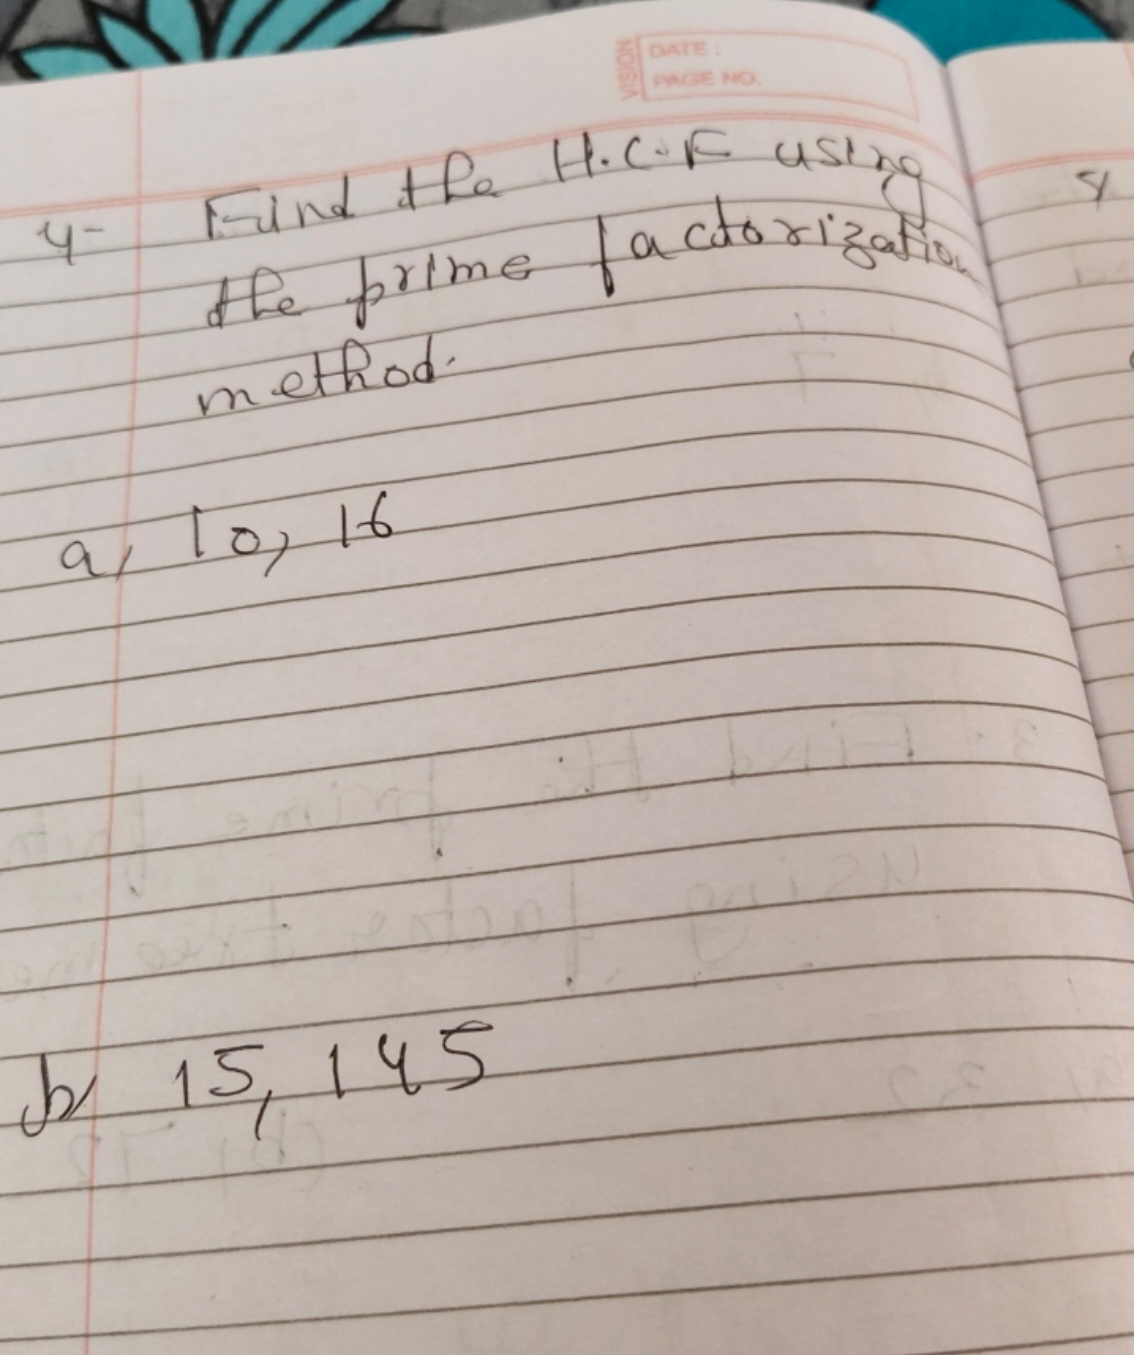 VISION
DATE :
PAGE NO.
4- Find the H.C.F using
the prime factorization
method.
a, 10, 16
b, 15, 145